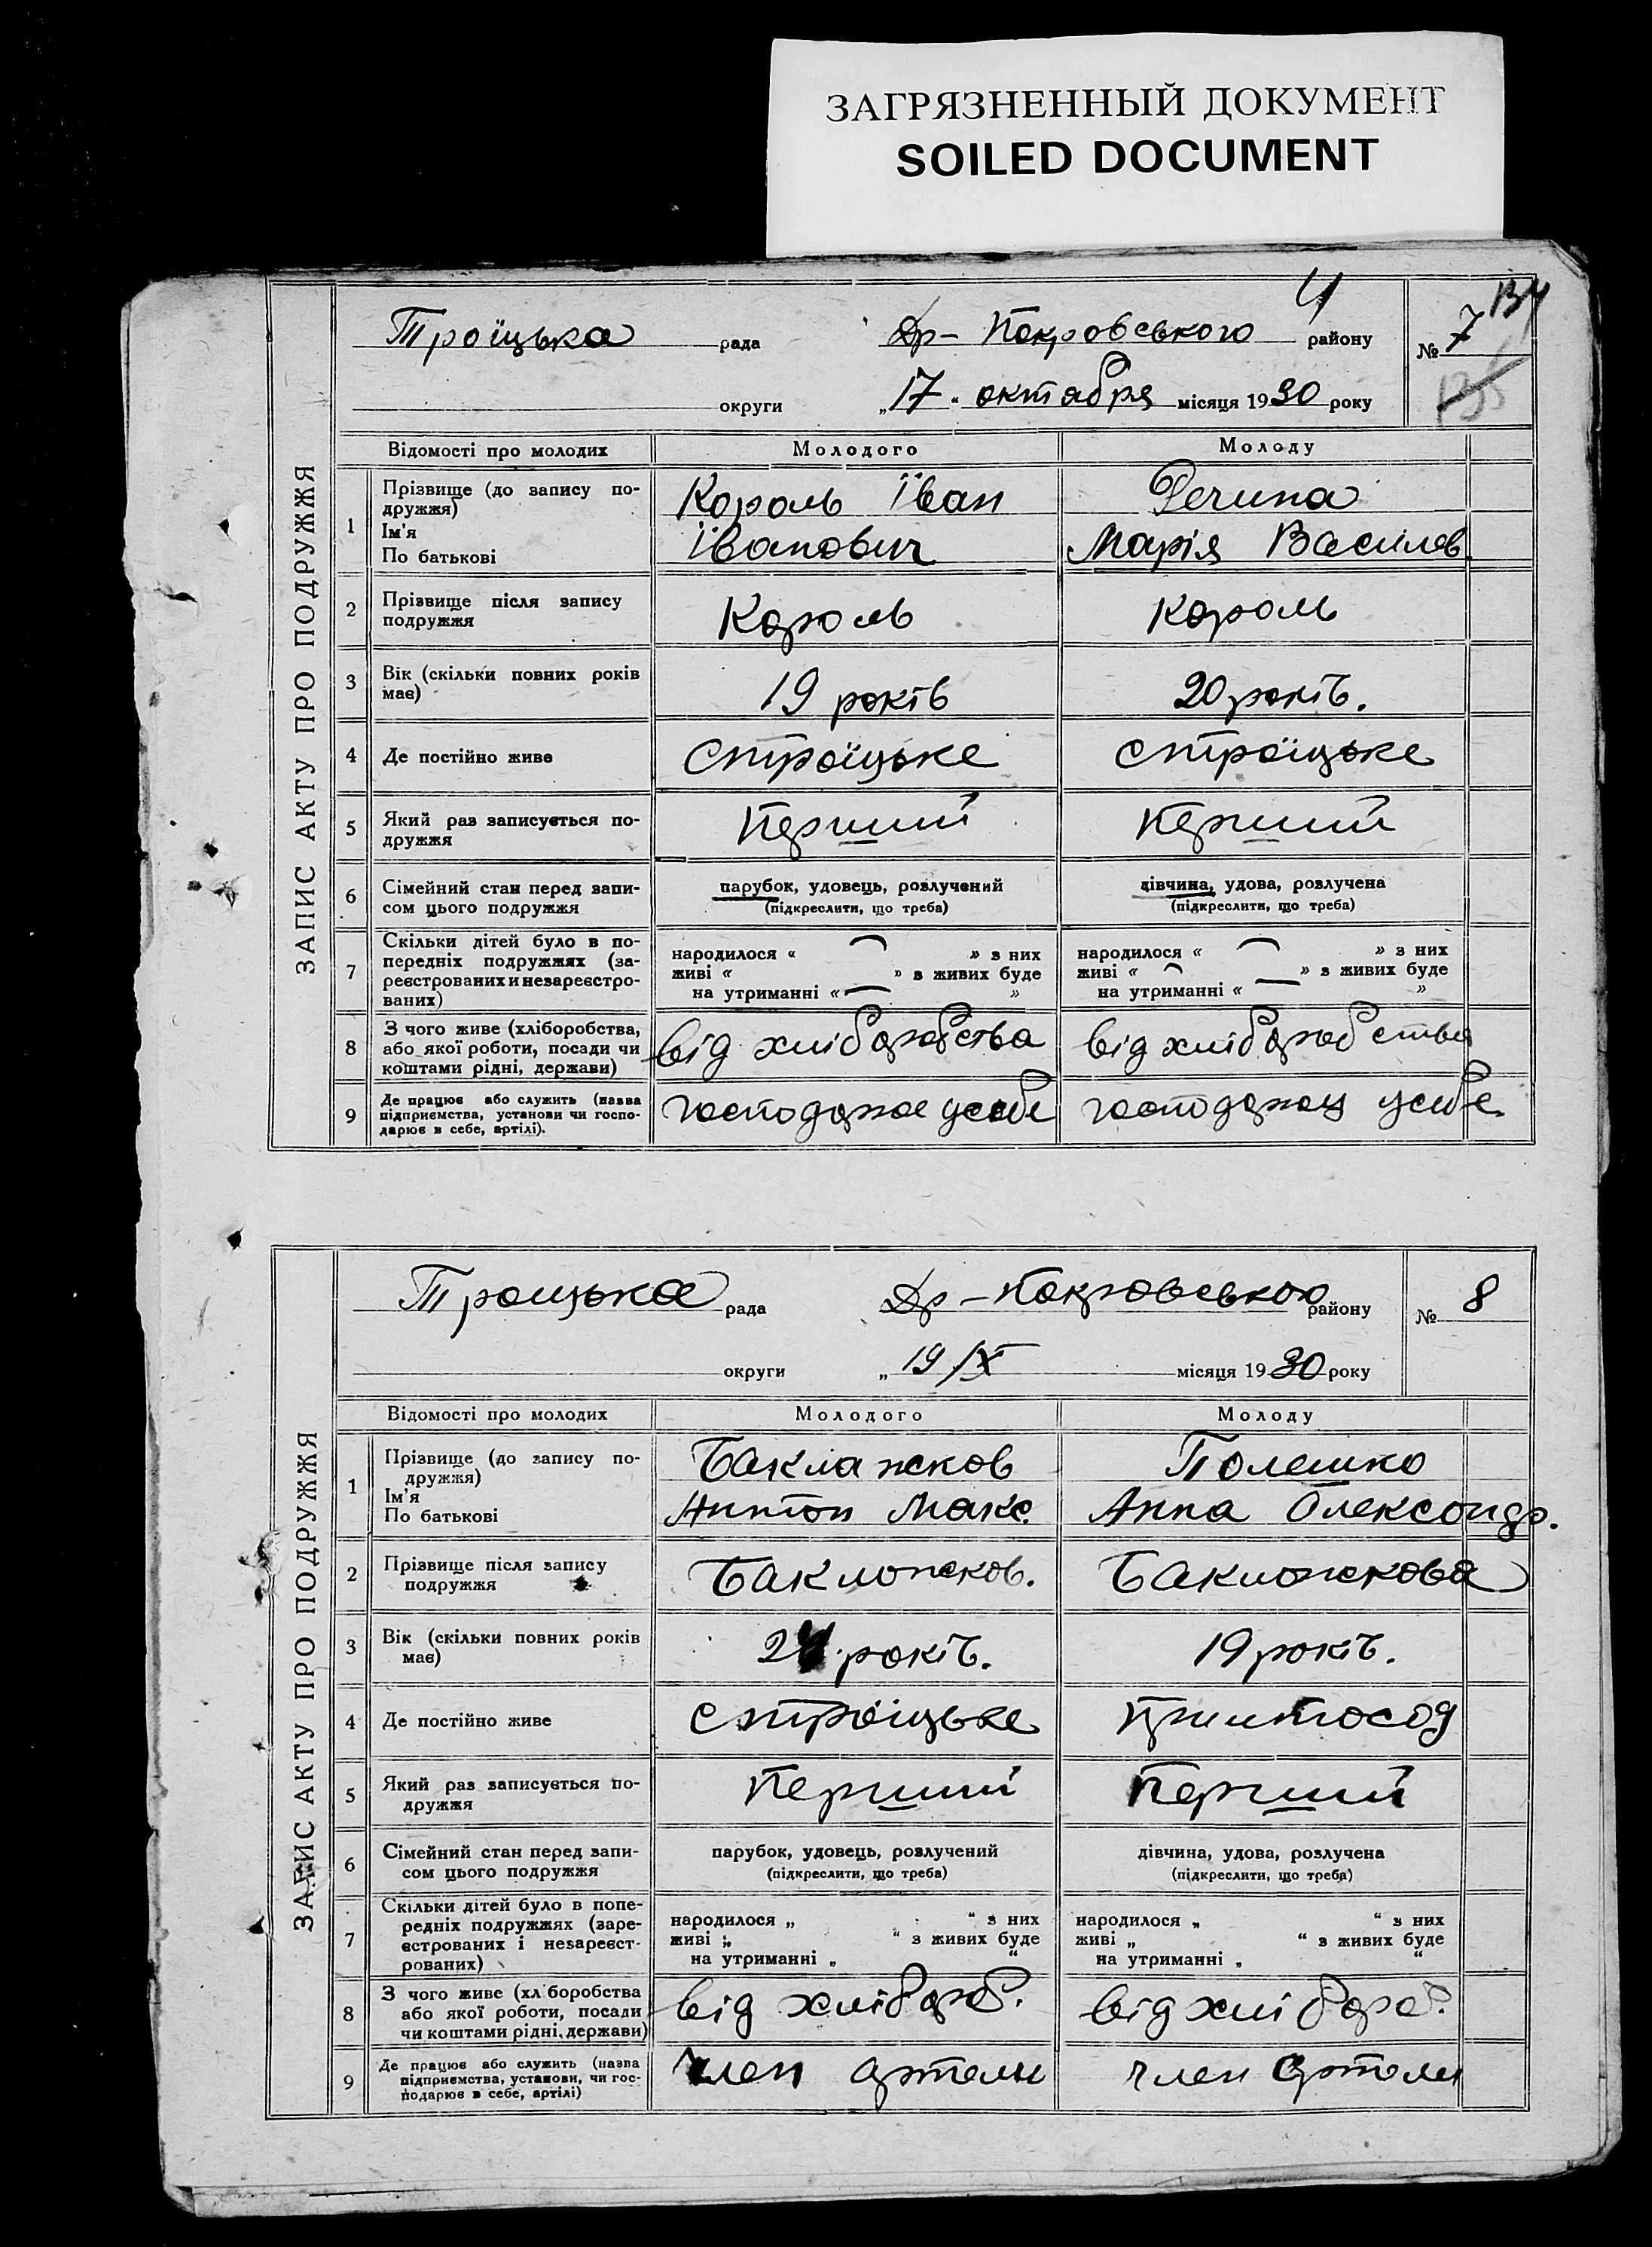 ЗАГРЯЗНЕННЫЙ ДОКУМЕНТ
SOILED DOCUMENT
4
134
135
ЗАПИС АКТУ ПРО ПОДРУЖЖЯ
Троїцька рада Др-Покровського району № 7
округи „17“ октября місяця 1930 року
Відомості про молодих Молодого Молоду
1 Прізвище (до запису по-
дружжя)
Ім'я
По батькові
Король Іван
Іванович
Речина
Марія Василев.
2 Прізвище після запису
подружжя
Король Король
3 Вік (скільки повних років
має)
19 років 20 років.
4 Де постійно живе
с Троїцьке с Троїцьке
5 Який раз записується по-
дружжя
Перший Перший
6 Сімейний стан перед запи-
сом цього подружжя
парубок, удовець, розлучений
(підкреслити, що треба)
дівчина, удова, розлучена
(підкреслити, що треба)
7 Скільки дітей було в по-
передніх подружжях (за-
реєстрованих и незареєстро-
ваних)
народилося « — » з них
живі « » з живих буде
на утриманні « — »
народилося « — » з них
живі « — » з живих буде
на утриманні « — »
8 З чого живе (хліборобства,
або якої роботи, посади чи
коштами рідні, держави)
від хліборобства від хліборобства
9 Де працює або служить (назва
підприємства, установи чи госпо-
дарює в себе, артілі).
господарює у себе у себе
ЗАПИС АКТУ ПРО ПОДРУЖЖЯ
Троицька рада Др-Покровського району № 8
округи „ 19/X місяця 1930 року
Відомості про молодих Молодого Молоду
1 Прізвище (до запису по-
дружжя)
Ім'я
По батькові
Баклажков
Антон Макс.
Полешко
Анна Олександр.
2 Прізвище після запису
подружжя
Баклажков. Баклажкова
3 Вік (скільки повних років
має)
років. 19 років.
4 Де постійно живе
с Троїцьке
5 Який раз записується по-
дружжя
Перший Перший
6 Сімейний стан перед запи-
сом цього подружжя
парубок, удовець, розлучений
(підкреслити, що треба)
дівчина, удова, розлучена
(підкреслити, що треба)
7 Скільки дітей було в попе-
редніх подружжях (заре-
єстрованих і незареєст-
рованих)
народилося „ “ з них
живі „ “ з живих буде
на утриманні „ “
народилося „ “ з них
живі „ “ з живих буде
на утриманні „ “
8 З чого живе (хліборобства
або якої роботи, посади
чи коштами рідні, держави)
від хлібороб. від хлібороб.
9 Де працює або служить (назва
підприємства, установи, чи гос-
подарює в себе, артілі)
член артели член артели